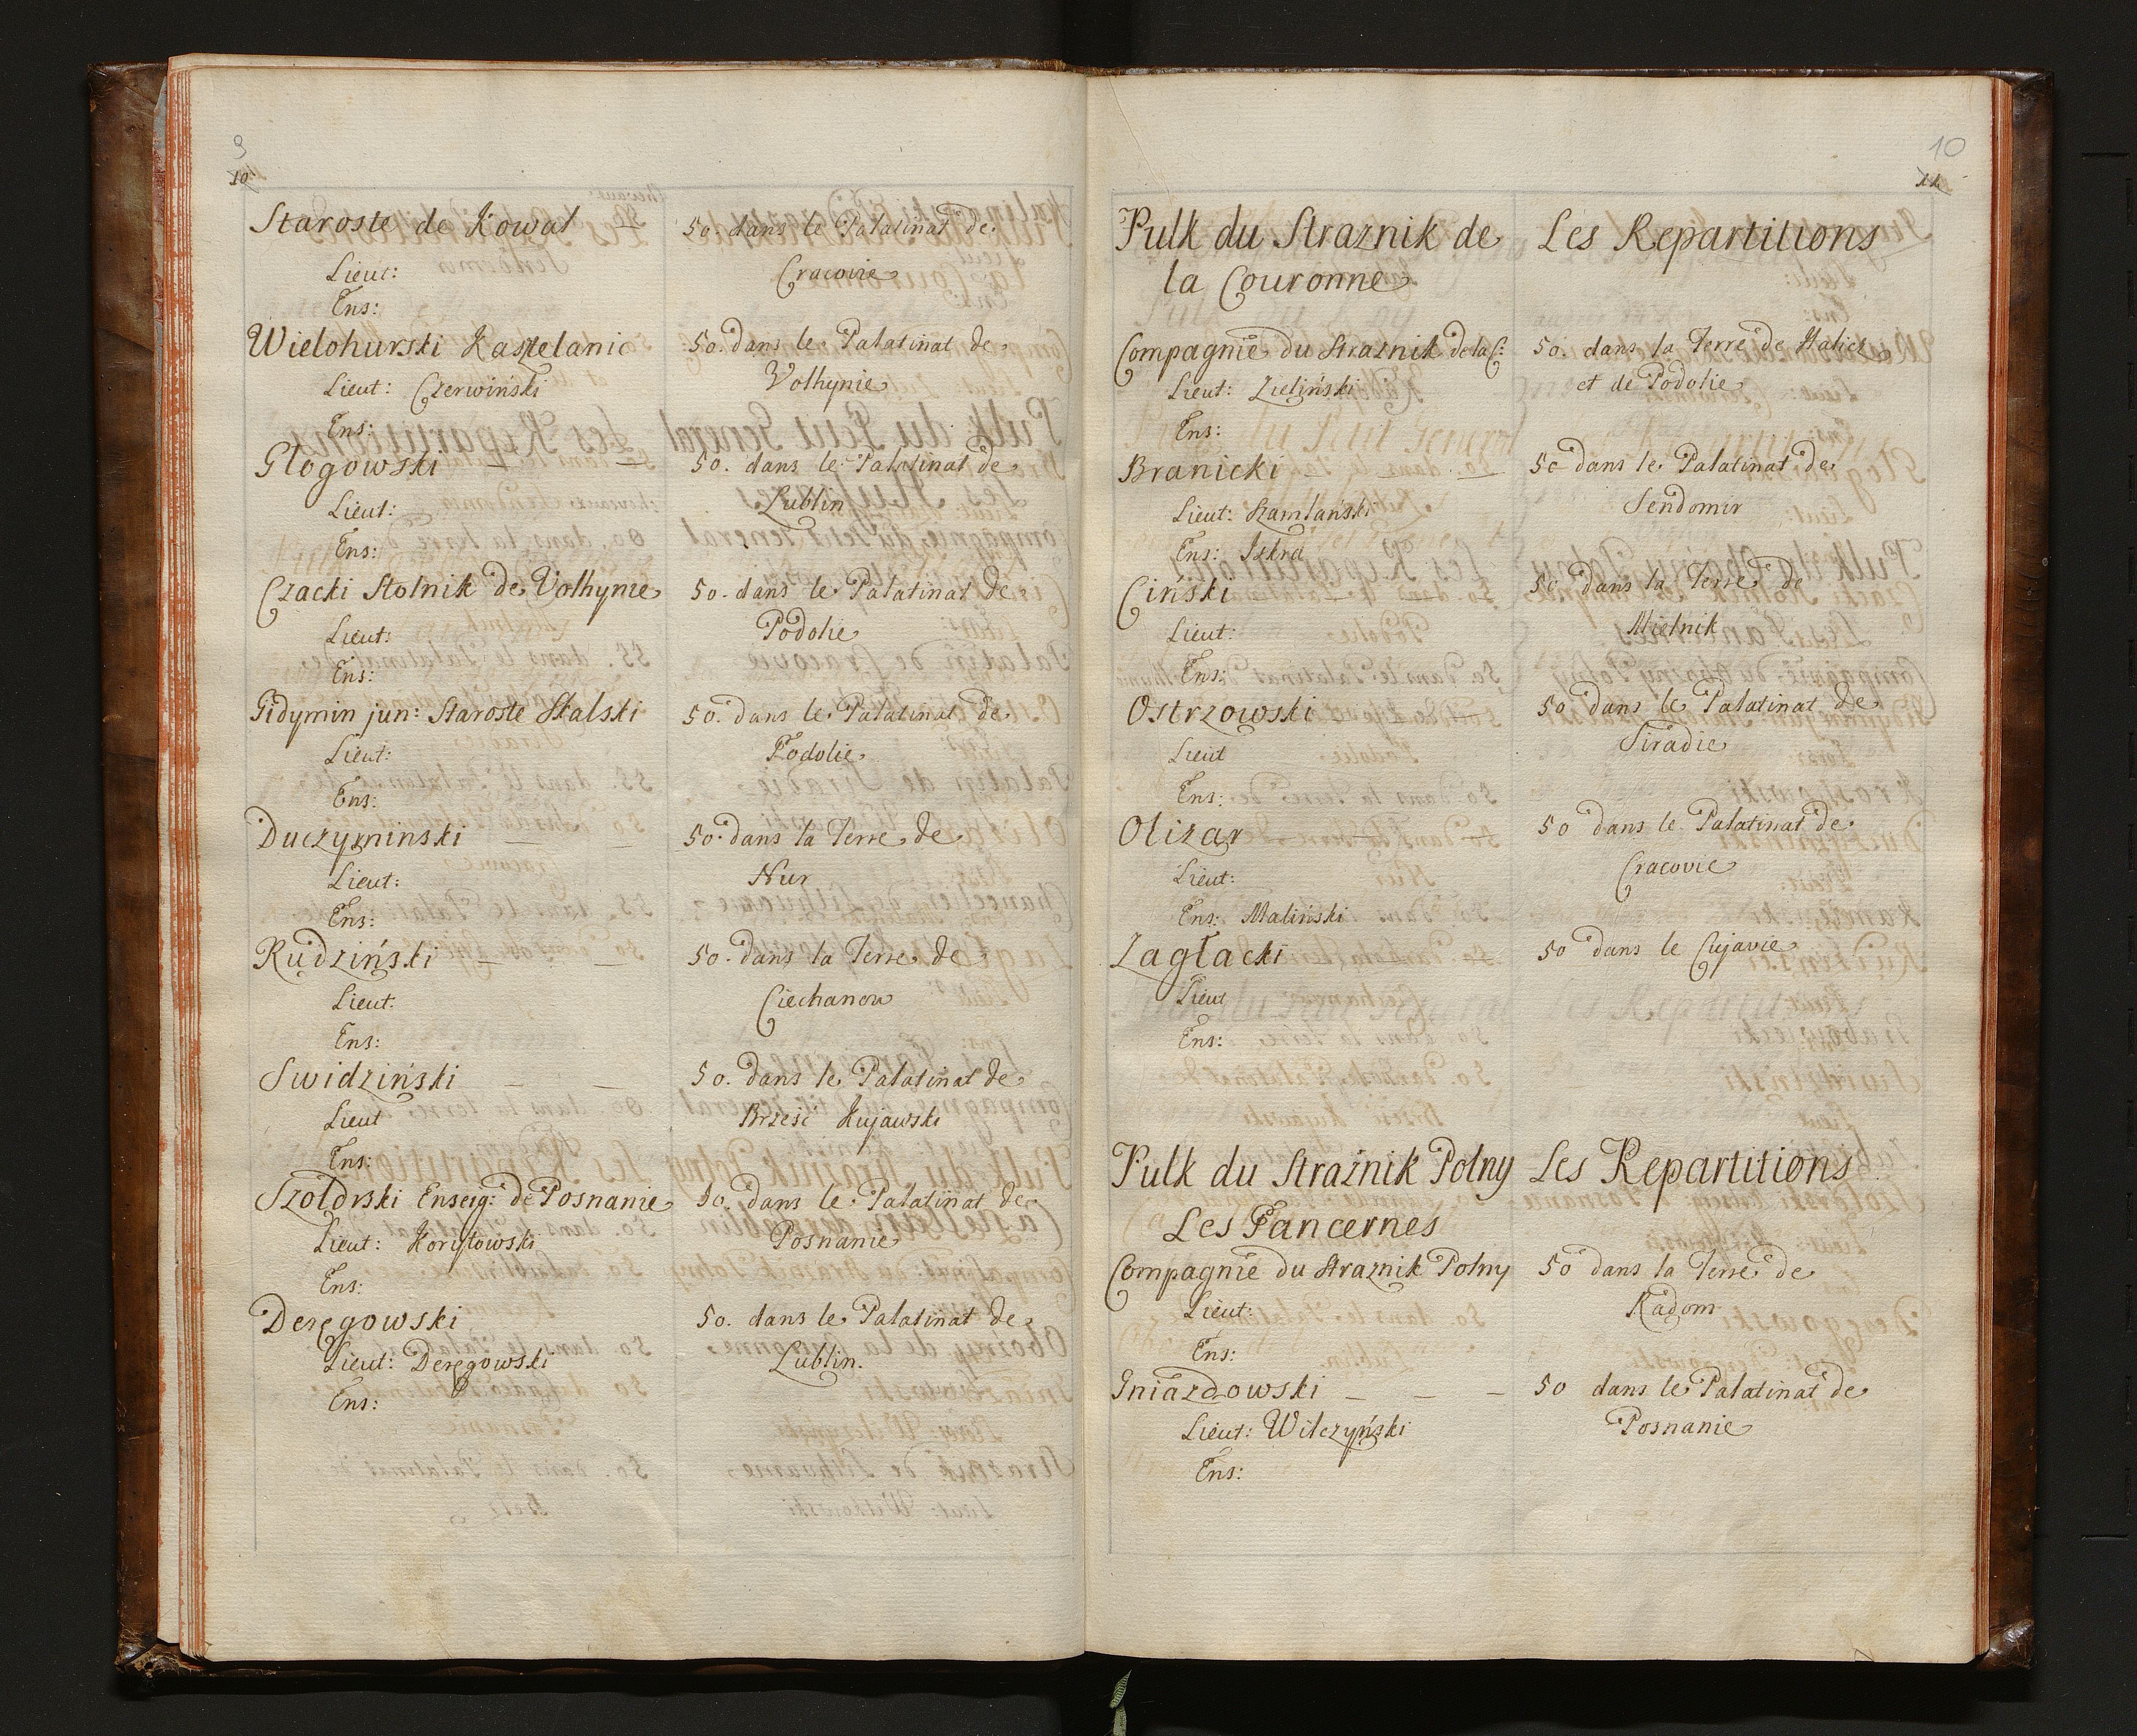 9
10
Staroste de Kowal — 50. dans le Palatinat de
Lieut: Cracovie
Ens:
Wielohurski Kasztelanic 50. dans le Palatinat de
Lieut: Czerwiński Volhynie
Ens:
Glogowski — — 50. dans le Palatinat de
Lieut: Lublin
Ens:
Czacki Stolnik de Volhynie 50. dans le Palatinat de
Lieut: Podolie
Ens:
Gidymin jun: Staroste Skalski 50. dans le Palatinat de
Lieut: Podolie
Ens:
Duczyminski — — 50. dans la Terre de
Lieut: Nur
Ens:
Rudziński — — 50. dans la Terre de
Lieut. Ciechanow
Ens:
Swidziński — — 50. dans le Palatinat de
Lieut Brześć Kujawski
Ens:
Szoldrski Enseig: de Posnanie 50. dans le Palatinat de
Lieut: Korytowski Posnanie
Ens:
Deręgowski 50. dans le Palatinat de
Lieut: Deręgowski Lublin.
Ens:
10
11
Pulk du Straznik de Les Repartitions
la Couronne
Compagnie du Straznik de la C: 50. dans la Terre de Halicz
Lieut: Zieliński et de Podolie
Ens:
Branicki — — — 50 dans le Palatinat de
Lieut: Kamlański Sendomir
Ens: Iskra
Ciński — — 50 dans la Terre de
Lieut: Mielnik
Ens:
Ostrzowski — — 50 dans le Palatinat de
Lieut Siradie
Ens:
Olizar — — — 50 dans le Palatinat de
Lieut: Cracovie
Ens: Maliński
Zagłacki — — 50 dans le Cujavie
Lieut
Ens:
Pulk du Straźnik Polny Les Repartitions
Les Pancernes
Compagnie du Straznik Polny 50 dans la Terre de
Lieut: Radom
Ens:
Gniazdowski — — — 50 dans le Palatinat de
Lieut: Wilczyński Posnanie
Ens: